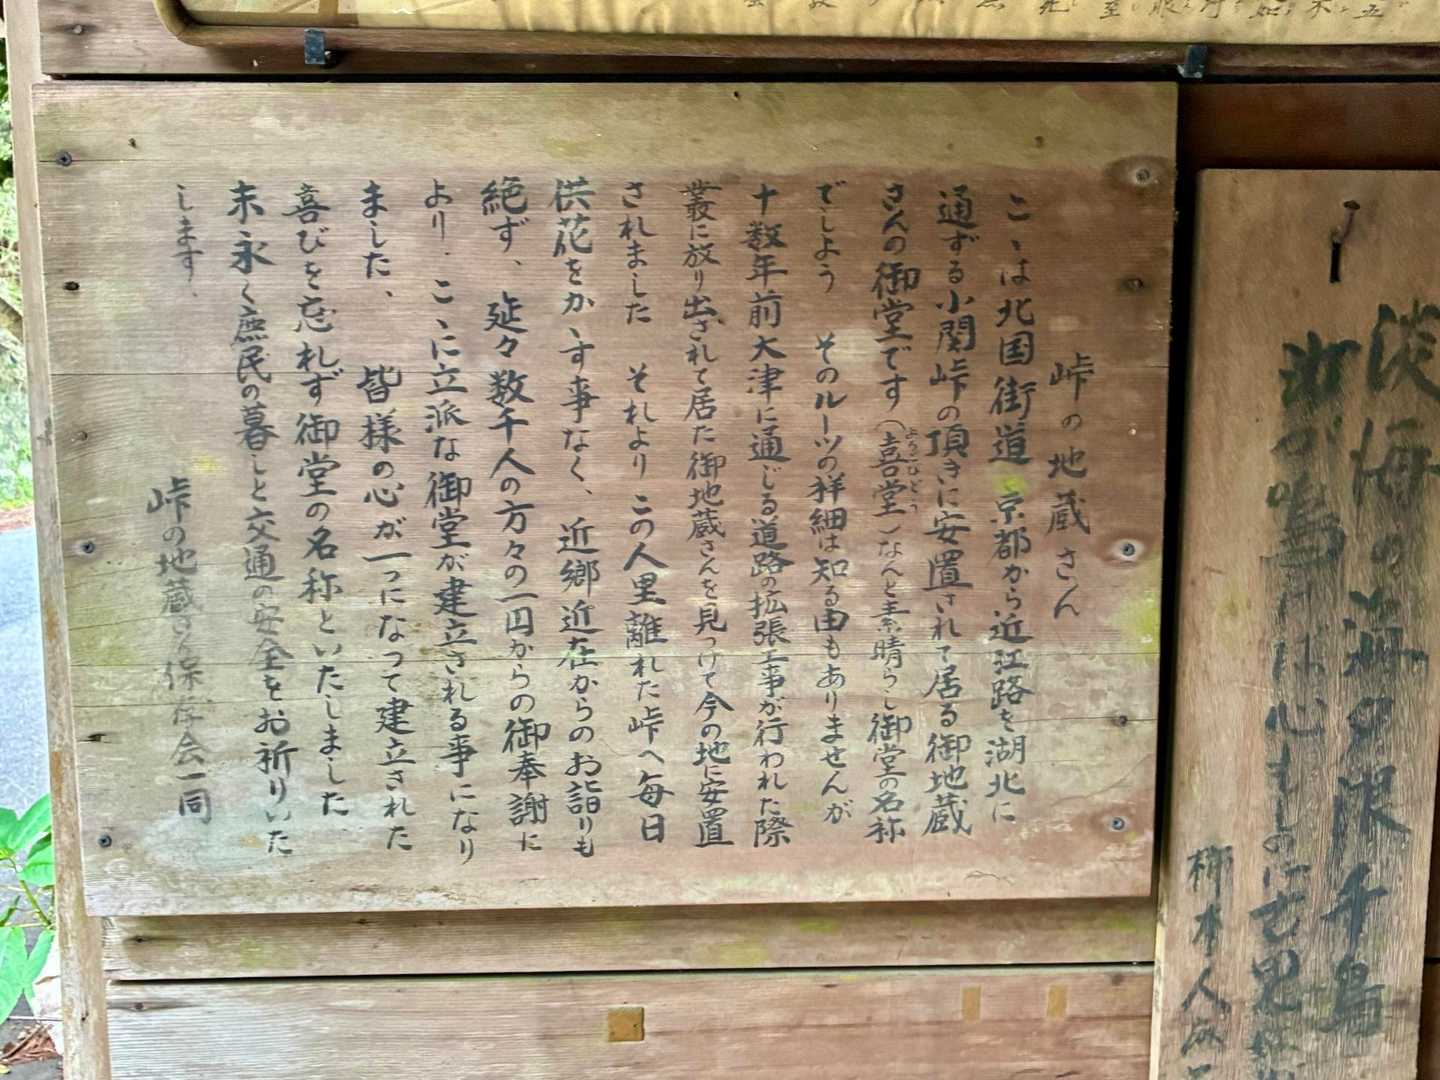 淡海の海夕浪千鳥
汝が鳴けば心もしのに
柿本人
峠の地蔵さん
こゝは北国街道 京都から近江路を湖北に
通ずる小関峠の頂きに安置されて居る御地蔵
さんの御堂です(喜堂)なんと素晴らし御堂の名称
よろこびどう
でしよう そのルーツの祥細は知る由もありませんが
十数年前大津に通じる道路の拡張工事が行われた際
叢に放り出されて居た御地蔵さんを見つけて今の地に安置
されました それよりこの人里離れた峠へ毎日
供花をかゝす事なく、近郷近在からのお詣りも
絶ず、延々数千人の方々の一円からの御奉謝に
より、こゝに立派な御堂が建立される事になり
ました、 皆様の心が一つになって建立された
喜びを忘れず御堂の名称といたしました
末永く庶民の暮しと交通の安全をお祈りいた
します、
峠の地蔵さん保存会一同